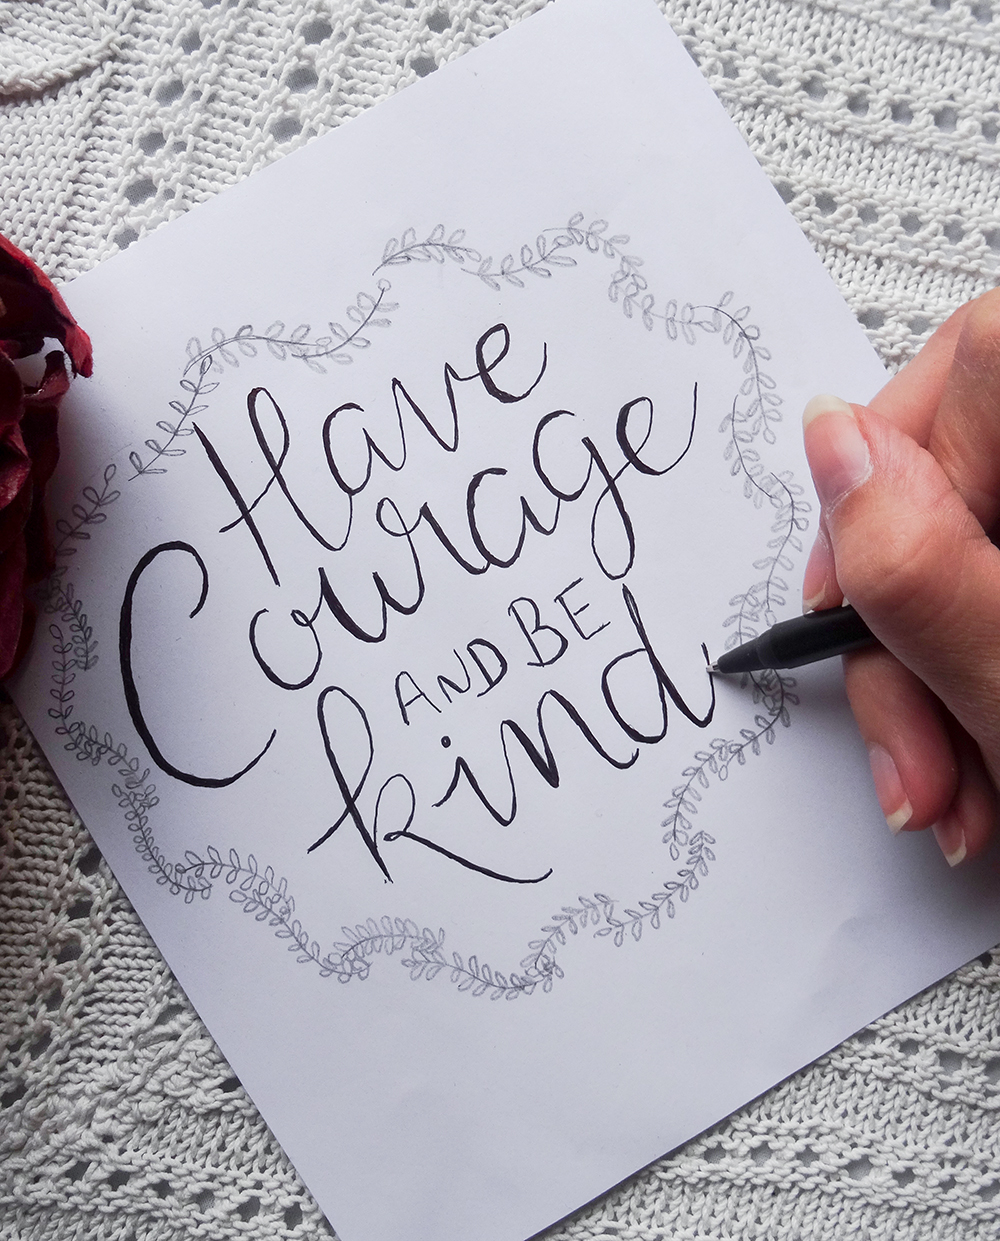 Have
Courage
AND BE
kind